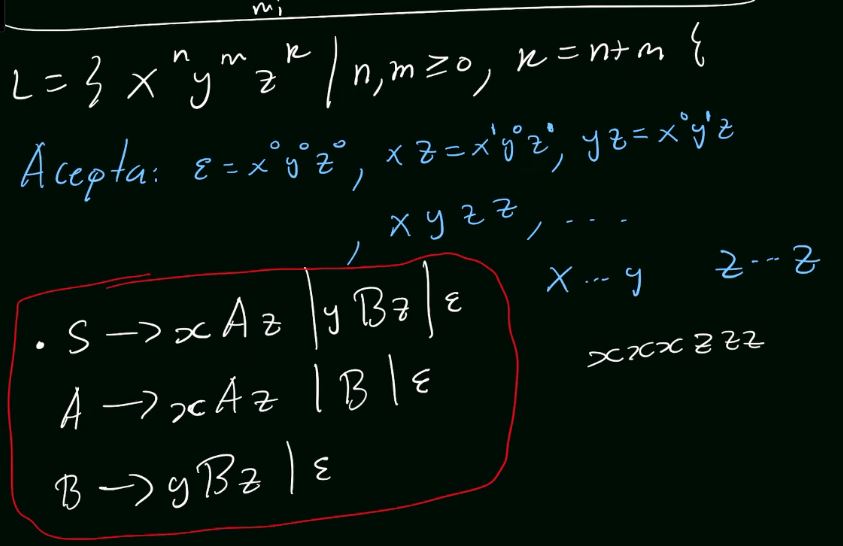 m,
L = { xⁿ yᵐ zᵏ | n, m ≥ 0, k = n+m {
Acepta: ε = x⁰ y⁰ z⁰, x z = x¹ y⁰ z¹, y z = x⁰ y¹ z
, x y z z , ...
x ... y z ... z
• S → x A z | y B z | ε
x x x z z z
A → x A z | B | ε
B → y B z | ε